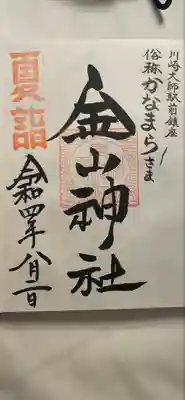 川崎大師駅前鎮座
俗称かなまらさま
金山神社
夏詣
令和四年八月一日